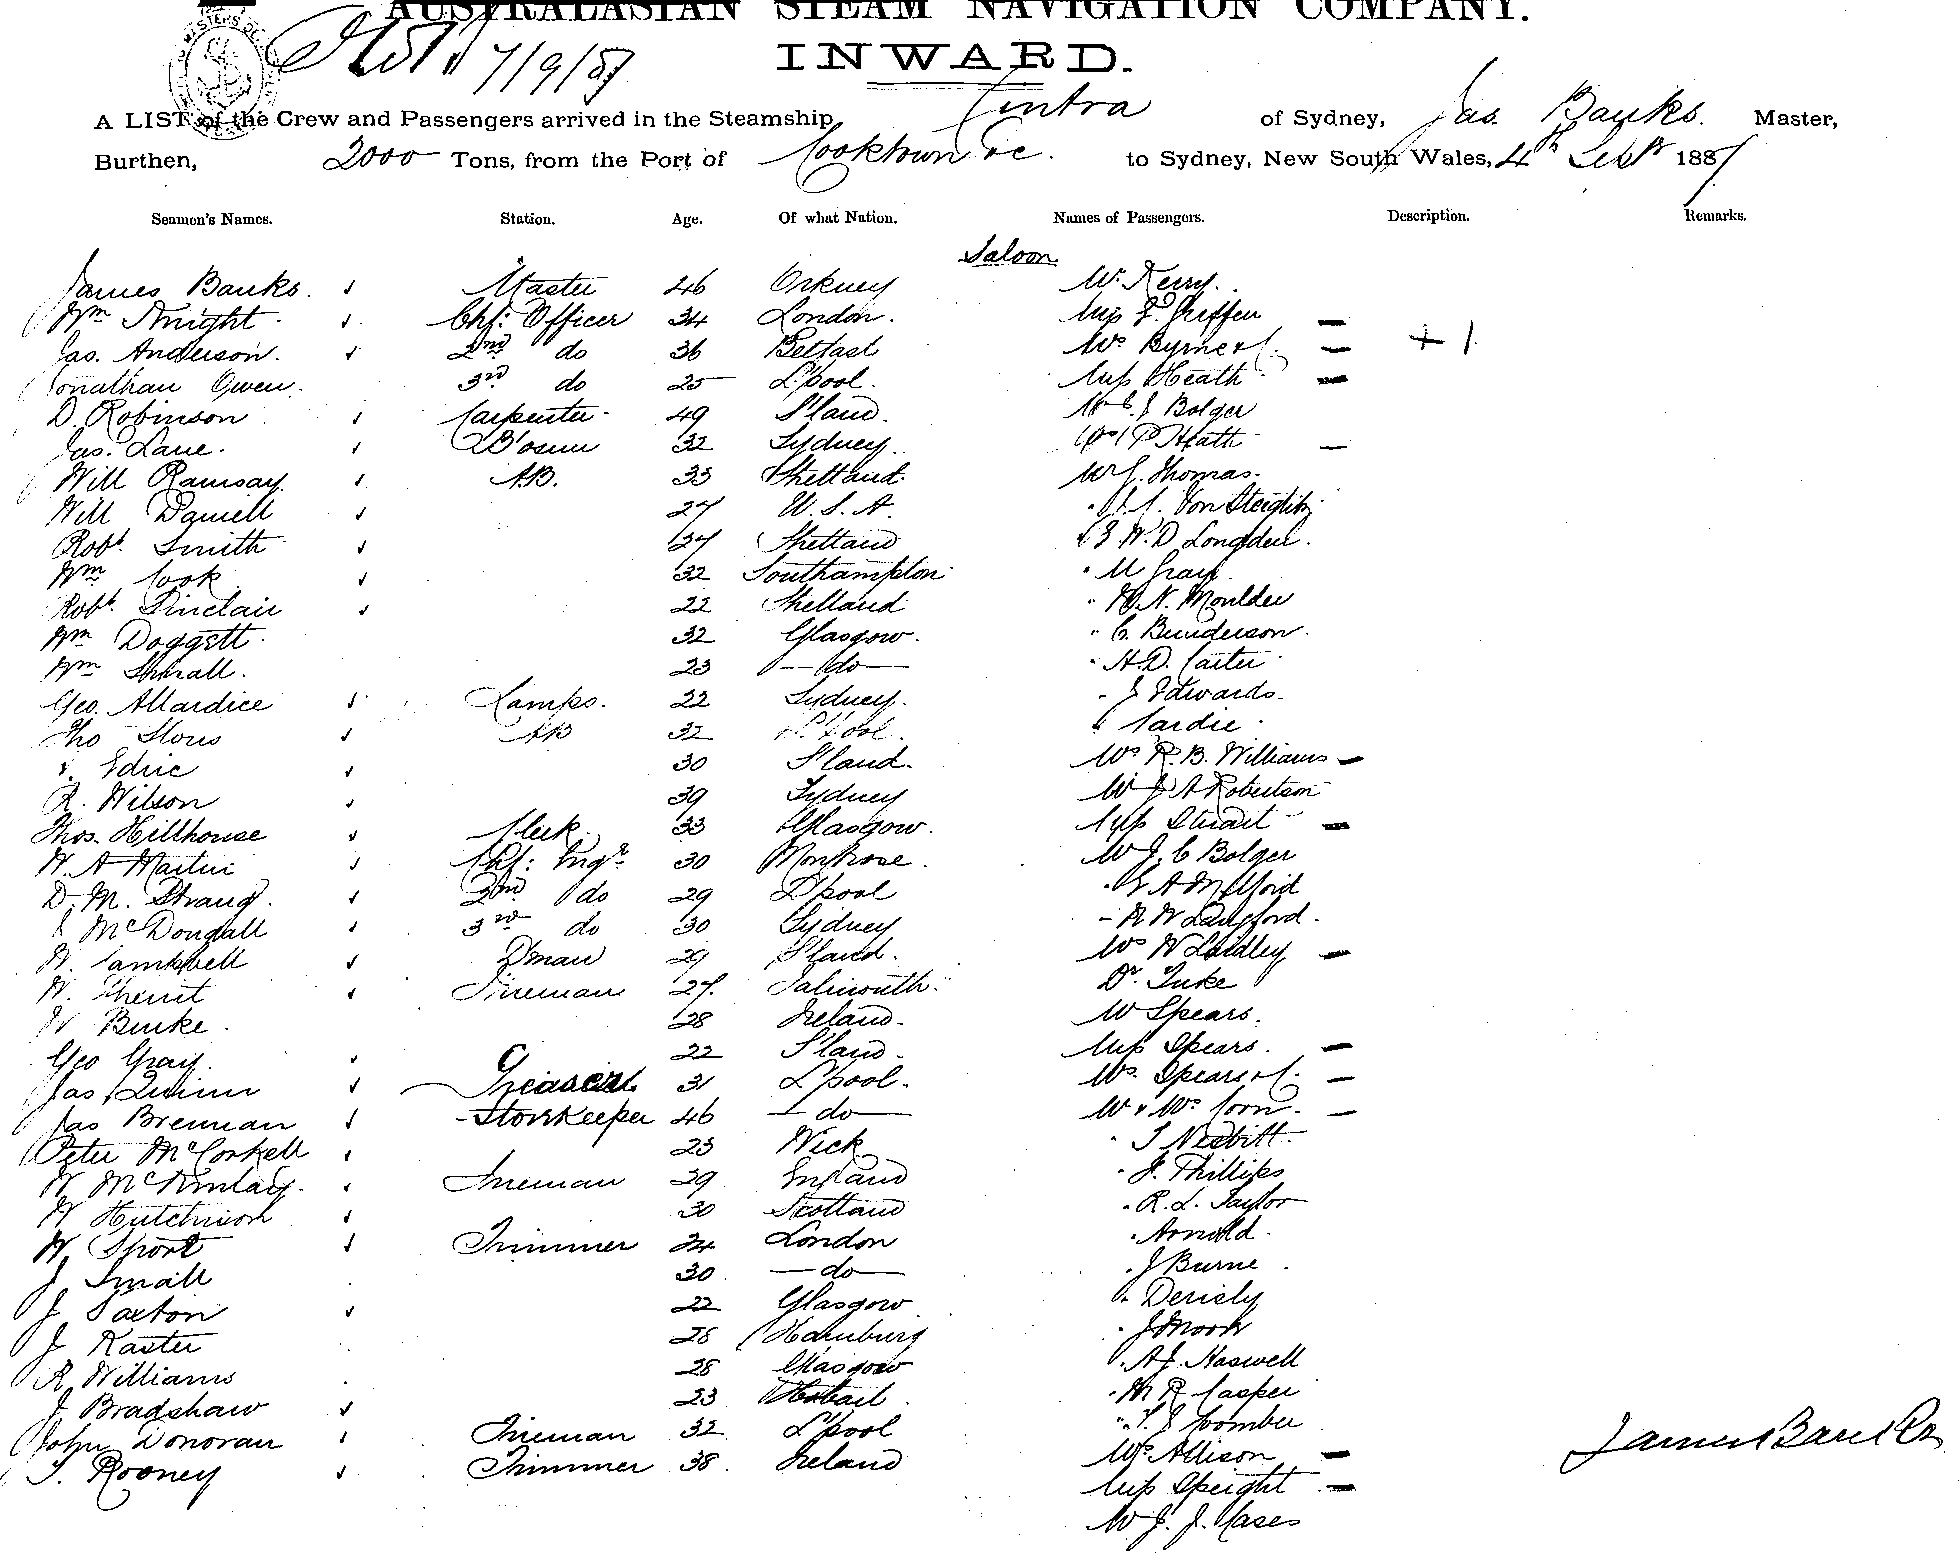 AUSTRALASIAN STEAM NAVIGATION COMPANY.
INWARD.
7/9/87
A LIST of the Crew and Passengers arrived in the Steamship Cintra of Sydney, Jas. Banks. Master,
Burthen, 2000 Tons, from the Port of Cooktown &c. to Sydney, New South Wales, 4th Septr 1887
Seamen's Names. Station. Age. Of what Nation. Names of Passengers. Description. Remarks.
Saloon
James Banks. Master 46 Orkney Mr. Kerry.
Wm Knight. Chf: Officer 34 London. Miss Griffen
Jas. Anderson. 2nd do 36 Belfast Mrs Byrne & C. + 1
Jonathan Owen. 3rd do 25 L'pool. Miss Heath
D. Robinson Carpenter 49 S'land. Bolger
Jas. Lane. Bosun 32 Sydney. Heath
Will Ramsay. A.B. 33 Shetland. Mr J. Thomas.
Will Daniell 27 U.S.A. Von Steiglitz
Robt. Smith 27 Shetland W. D Longden.
Wm Cook 32 Southampton " M Gray
Robt. Sinclair 22 Shetland " N. Moulder
Wm Doggett. 32 Glasgow. " C. Bunderson.
Wm Small. 23 — do — " H. D. Carter
Geo. Allardice Lamps. 22 Sydney. " J Edwards.
Tho AB 32 L'pool. " Cardie
Edrie 30 S'land. Mrs R. B. Williams
R. Wilson 39 Sydney Mr J A Robertson
Thos. Hillhouse Clerk. 33 Glasgow. Miss Stuart
W. A Martin Chf: Engr. 30 Montrose. Mr J. C Bolger
D. M. Strang. 2nd do 29 L'pool
McDougall 3rd do 30 Sydney " R W Langford.
W. Campbell D'man 29 S'land. Mrs W Laidley
W. Fireman 27. Falmouth. Dr. Tuke
W Burke. 28 Ireland. Mr Spears.
Geo Gray. 22 S'land. Miss Spears.
Jas Quinn Greaser 31 L'pool. Mrs. Spears & C.
Jas Brennan Storekeeper 46 — do — Mr & Mrs Corn.
Peter McCorkell 23 Wick " T Nesbitt.
W McKinlay. Fireman 29 England " J. Phillips
W Hutchison 30 Scotland " R. L. Taylor
W. Short Trimmer 24 London " Arnold.
J. Small 30 — do — " J Burne
J. Saxton 22 Glasgow
J Raster 28 Hamburg
R Williams 28 Glasgow " A. J. Haswell
J Bradshaw 23 " M R Casper
John Donovan Fireman 32 L'pool " Coomber
T. Rooney Trimmer 38 Ireland Mrs. Allison
Miss Speight
Mr J. J. Cases
James Banks